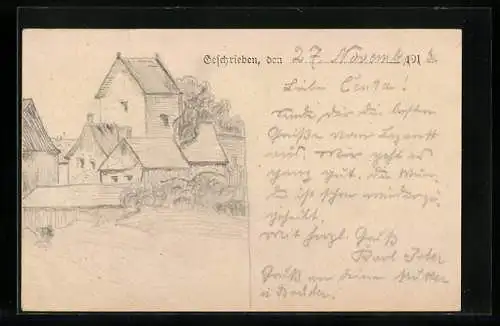 Geschrieben, den 27 Novemb. 191
Liebe Centa!
Sende Dir die besten
Grüße vom Lazarett
aus. Mir geht es
ganz gut. Die Wun-
de ist schon wieder zu-
geheilt.
Mit herzl. Gruß
Karl Peter
Gruß an deine Mutter
u Bruder.